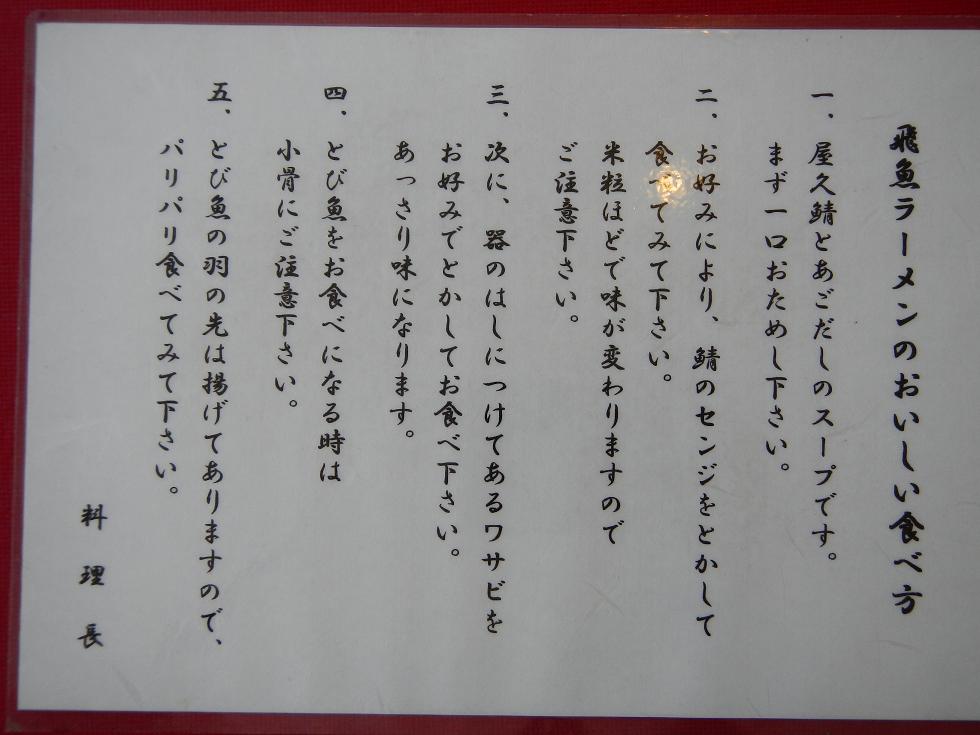 飛魚ラーメンのおいしい食べ方
一、屋久鯖とあごだしのスープです。
まず一口おためし下さい。
二、お好みにより、鯖のセンジをとかして
食べてみて下さい。
米粒ほどで味が変わりますので
ご注意下さい。
三、次に、器のはしにつけてあるワサビを
お好みでとかしてお食べ下さい。
あっさり味になります。
四、とび魚をお食べになる時は
小骨にご注意下さい。
五、とび魚の羽の先は揚げてありますので、
パリパリ食べてみて下さい。
料理長